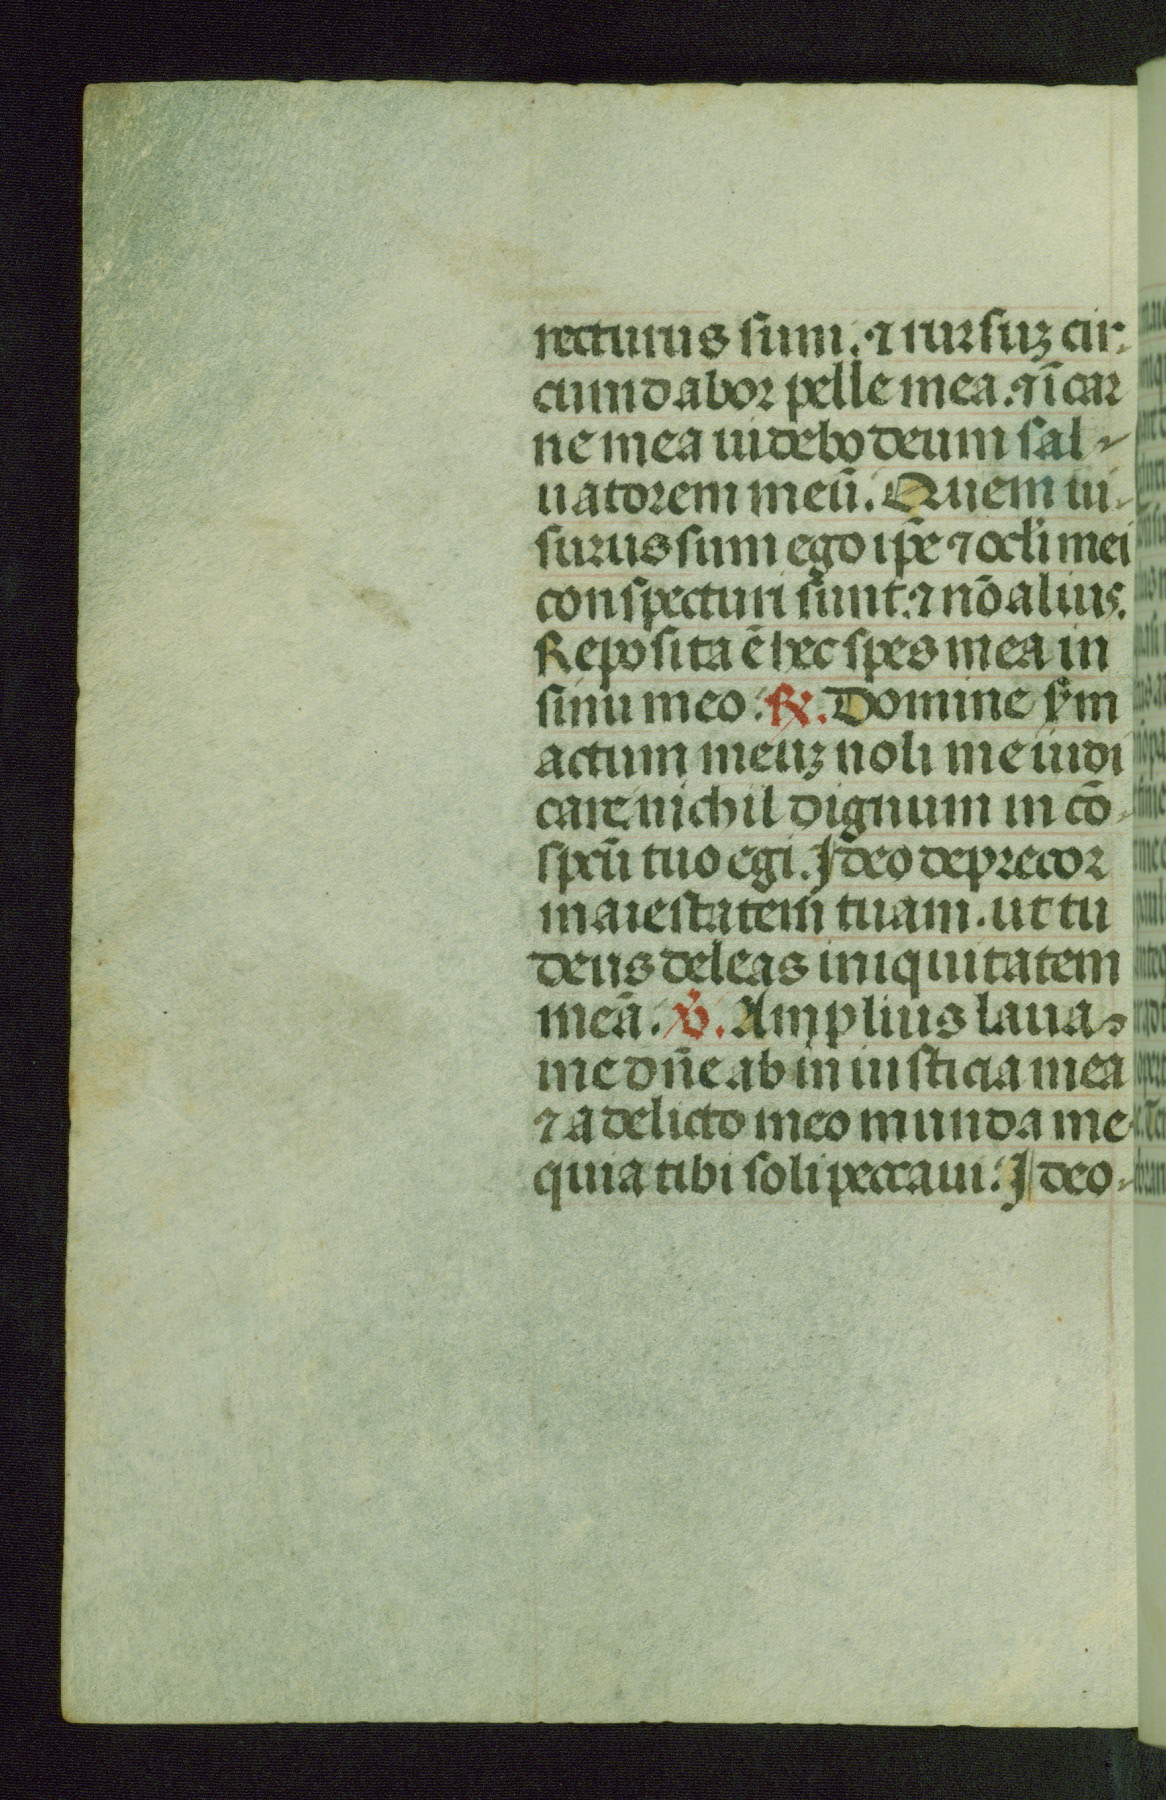 recturus sum. ⁊ rursuꝫ cir-
cumdabor pelle mea. ⁊ ī car
ne mea uidebo deum sal-
uatorem meū. Quem ui-
surus sum ego ip̄e ⁊ ocl̓i mei
conspecturi sunt. ⁊ nō alius.
Reposita ē hec spes mea in
sinu meo. ℟. Domine s̄m
actum meuꝫ noli me iudi
care nichil dignum in cō-
spcū tuo egi. Ideo deprecor
maiestatem tuam. ut tu
deus deleas iniquitatem
meā. ℣. Amplius laua
me dn̄e ab iniusticia mea
⁊ a delicto meo munda me
quia tibi soli peccaui. Ideo-